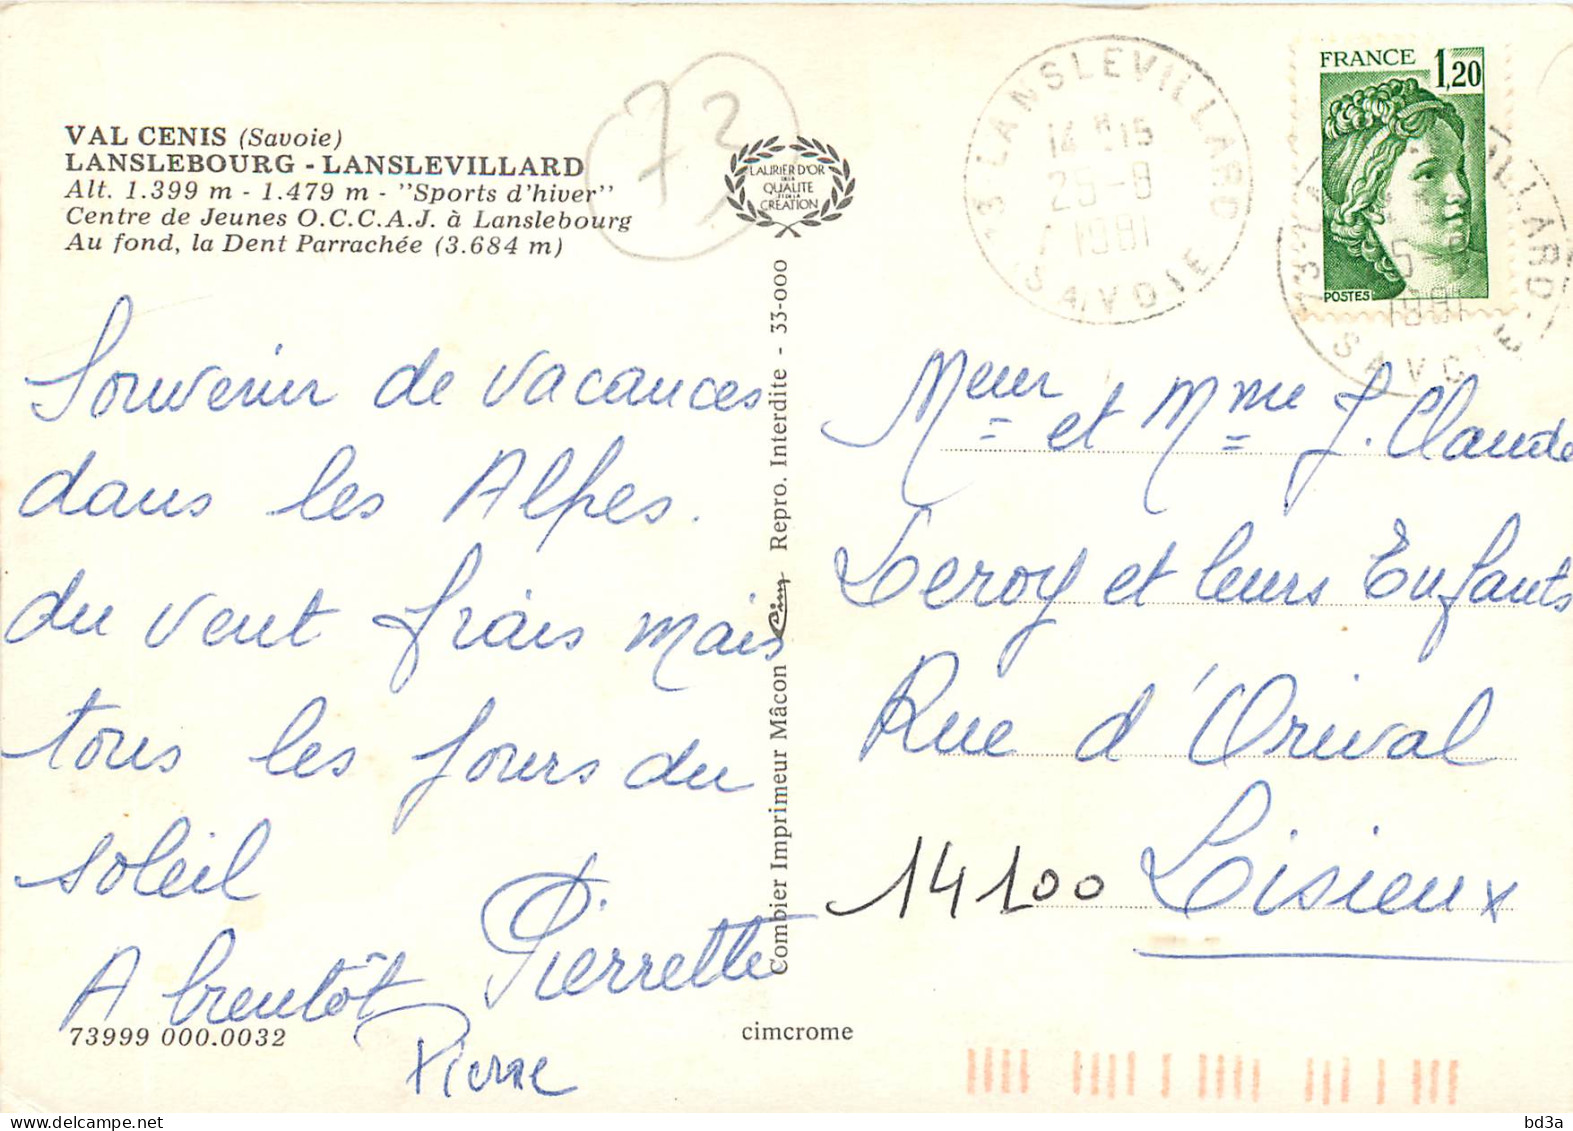 VAL CENIS (Savoie)
LANSLEBOURG - LANSLEVILLARD
Alt. 1.399 m - 1.479 m - "Sports d'hiver"
Centre de Jeunes O.C.C.A.J. à Lanslebourg
Au fond, la Dent Parrachée (3.684 m)
73
LAURIER D'OR
DE LA
QUALITE
ET DE LA
CREATION
Souvenir de vacances
dans les Alpes.
du vent frais mais
tous les jours du
soleil
A bientôt Pierrette
Pierre
73999 000.0032
Combier Imprimeur Mâcon Cim Repro. Interdite - 33-000
cimcrome
73 LANSLEVILLARD
14 H 15
1981
SAVOIE
FRANCE 1,20
POSTES
1981
SAVOIE
Meur et Mme J. Claude
Leroy et leurs Enfants
Rue d'Orival
14100 Lisieux
bd3a